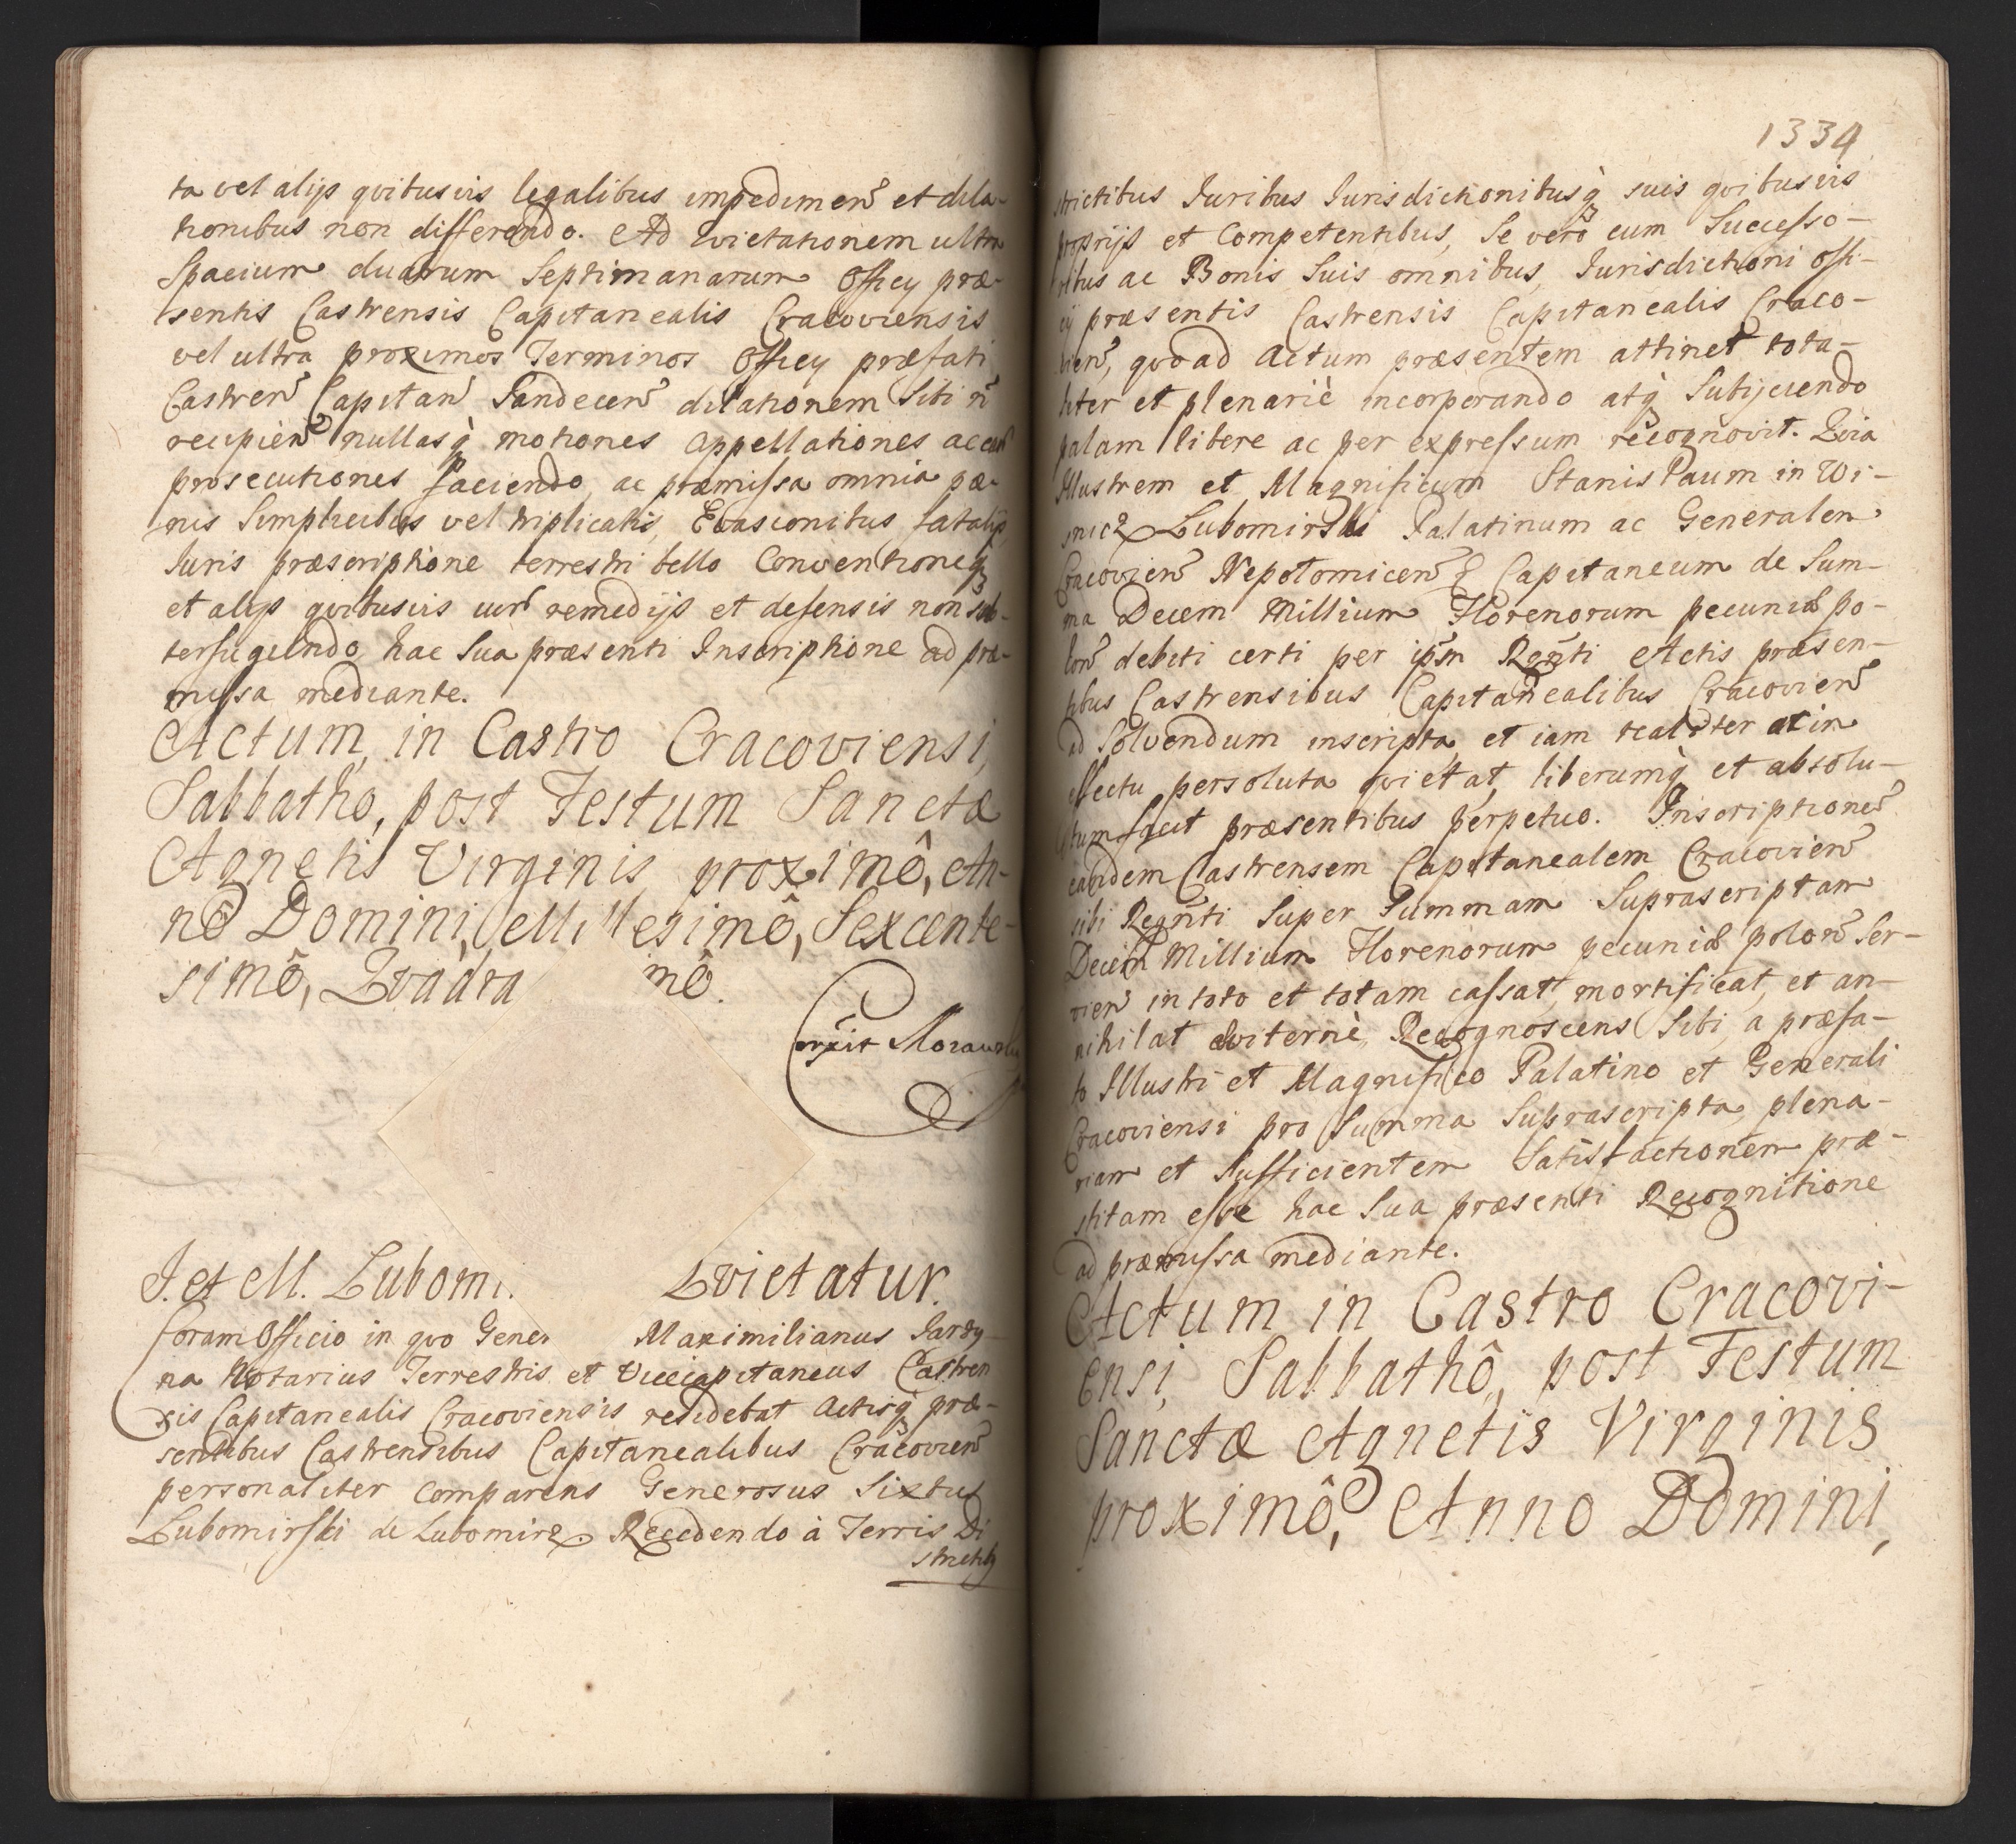 ta vel alijs qvibusvis legalibus impedimen̄ et dila-
tionibus non differendo. Ad Evictationem ultra
Spacium duarum Septimanarum Officy præ-
sentis Castrensis Capitanealis Cracoviensis
vel ultra proximos Terminos Officy præfati
Castren̄ Capitan̄ Sandecen̄ dilationem Sibi n̄
recipien̄ nullasq̀ motiones appellationes ac
prosecutiones faciendo, ac præmissa omnia pæ-
nis Simplicibus vel triplicatis, Evasionibus, fatalijs,
Juris præscriptione terrestri bello Conventioneq̀
et alijs qvibusvis iuris remedijs et defensis non sub-
terfugiendo, hac Sua præsenti Inscriptione ad præ-
missa mediante.
Actum, in Castro Cracoviensi,
Sabbatho, post Festum Sanctæ
Agnetis Virginis proximô, An-
nô Domini, Millesimô, Sexcente-
simô, Qvadra mô.
Corrxit Morawski
I. et M. Lubom. Qvietatur.
Coram Officio in qvo Gener Maximilianus Jardy-
na Notarius Terrestris et Vicecapitaneus Castren
sis Capitanealis Cracoviensis residebat Actisq̀ præ-
sentibus Castrensibus Capitanealibus Cracovien̄
personaliter comparens Generosus Sixtus
Lubomirski de Lubomirz. Recedendo à Terris Di
strictib9
1334
strictibus Juribus Jurisdictionibusq̀ suis qvibusvis
proprijs et Competentibus, Se verò cum Successo-
ribus ac Bonis Suis omnibus, Jurisdictioni offi-
cij præsentis Castrensis Capitanealis Craco-
vien̄, qvoad Actum præsentem attinet tota-
liter et plenariè incorporando atq̀ Subijciendo
palam libere ac per expressum recognovit. Qvia
Illustrem et Magnificum Stanislaum in Wi-
snicz Lubomirski Palatinum ac Generalem
Cracovien̄ Nepolomicen̄ q̀ Capitaneum de Sum-
ma Decem Millium Florenorum pecuniæ po-
lon̄ debiti certi per ipsm̄ Regn̄ti Actis præsen-
tibus Castrensibus Capitanealibus Cracovien̄
ad Solvendum inscripta, et iam realiter ac in
effectu persoluta qvietat, liberumq̀ et absolu-
tum facit præsentibus perpetuo. Inscriptionem
eandem Castrensem Capitanealem Cracovien̄
sibi Regn̄ti Super Summam Suprascriptam
Decem Millium Florenorum pecuniæ polon̄ Ser-
vien̄ in toto et totam cassat, mortificat, et an-
nihilat æviternè, Recognoscens Sibi, a præfa-
to Illustri et Magnifico Palatino et Generali
Cracoviensi pro Summa Suprascripta, plena-
riam et Sufficientem Satisfactionem præ-
stitam esse hac Sua præsenti Recognitione
ad præmissa mediante.
Actum in Castro Cracovi-
ensi, Sabbathô, post Festum
Sanctæ Agnetis Virginis
proximô, Anno Domini,